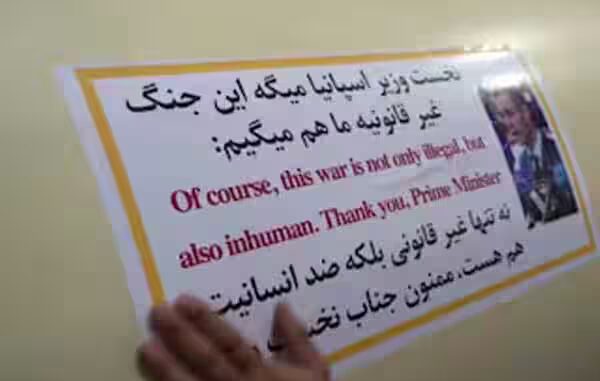 نخست وزیر اسپانیا میگه این جنگ
غیر قانونیه ما هم میگیم:
Of course, this war is not only illegal, but
also inhuman. Thank you, Prime Minister
نه تنها غیر قانونی بلکه ضد انسانیت
هم هست. ممنون جناب